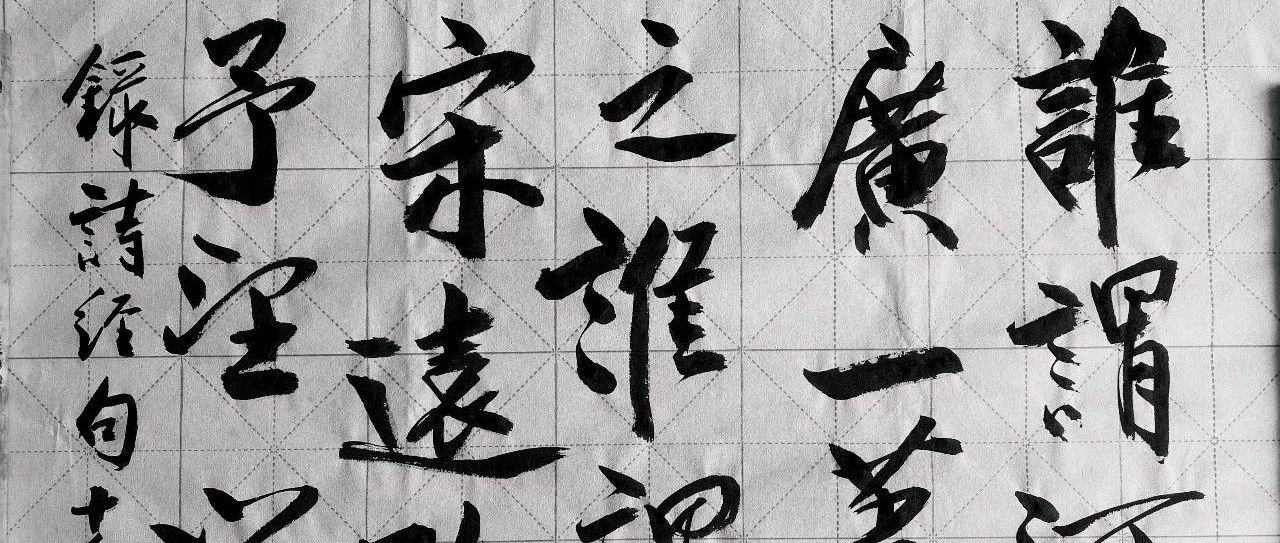 誰謂河
廣一葦
之誰謂
宋遠
予望
錄詩经句